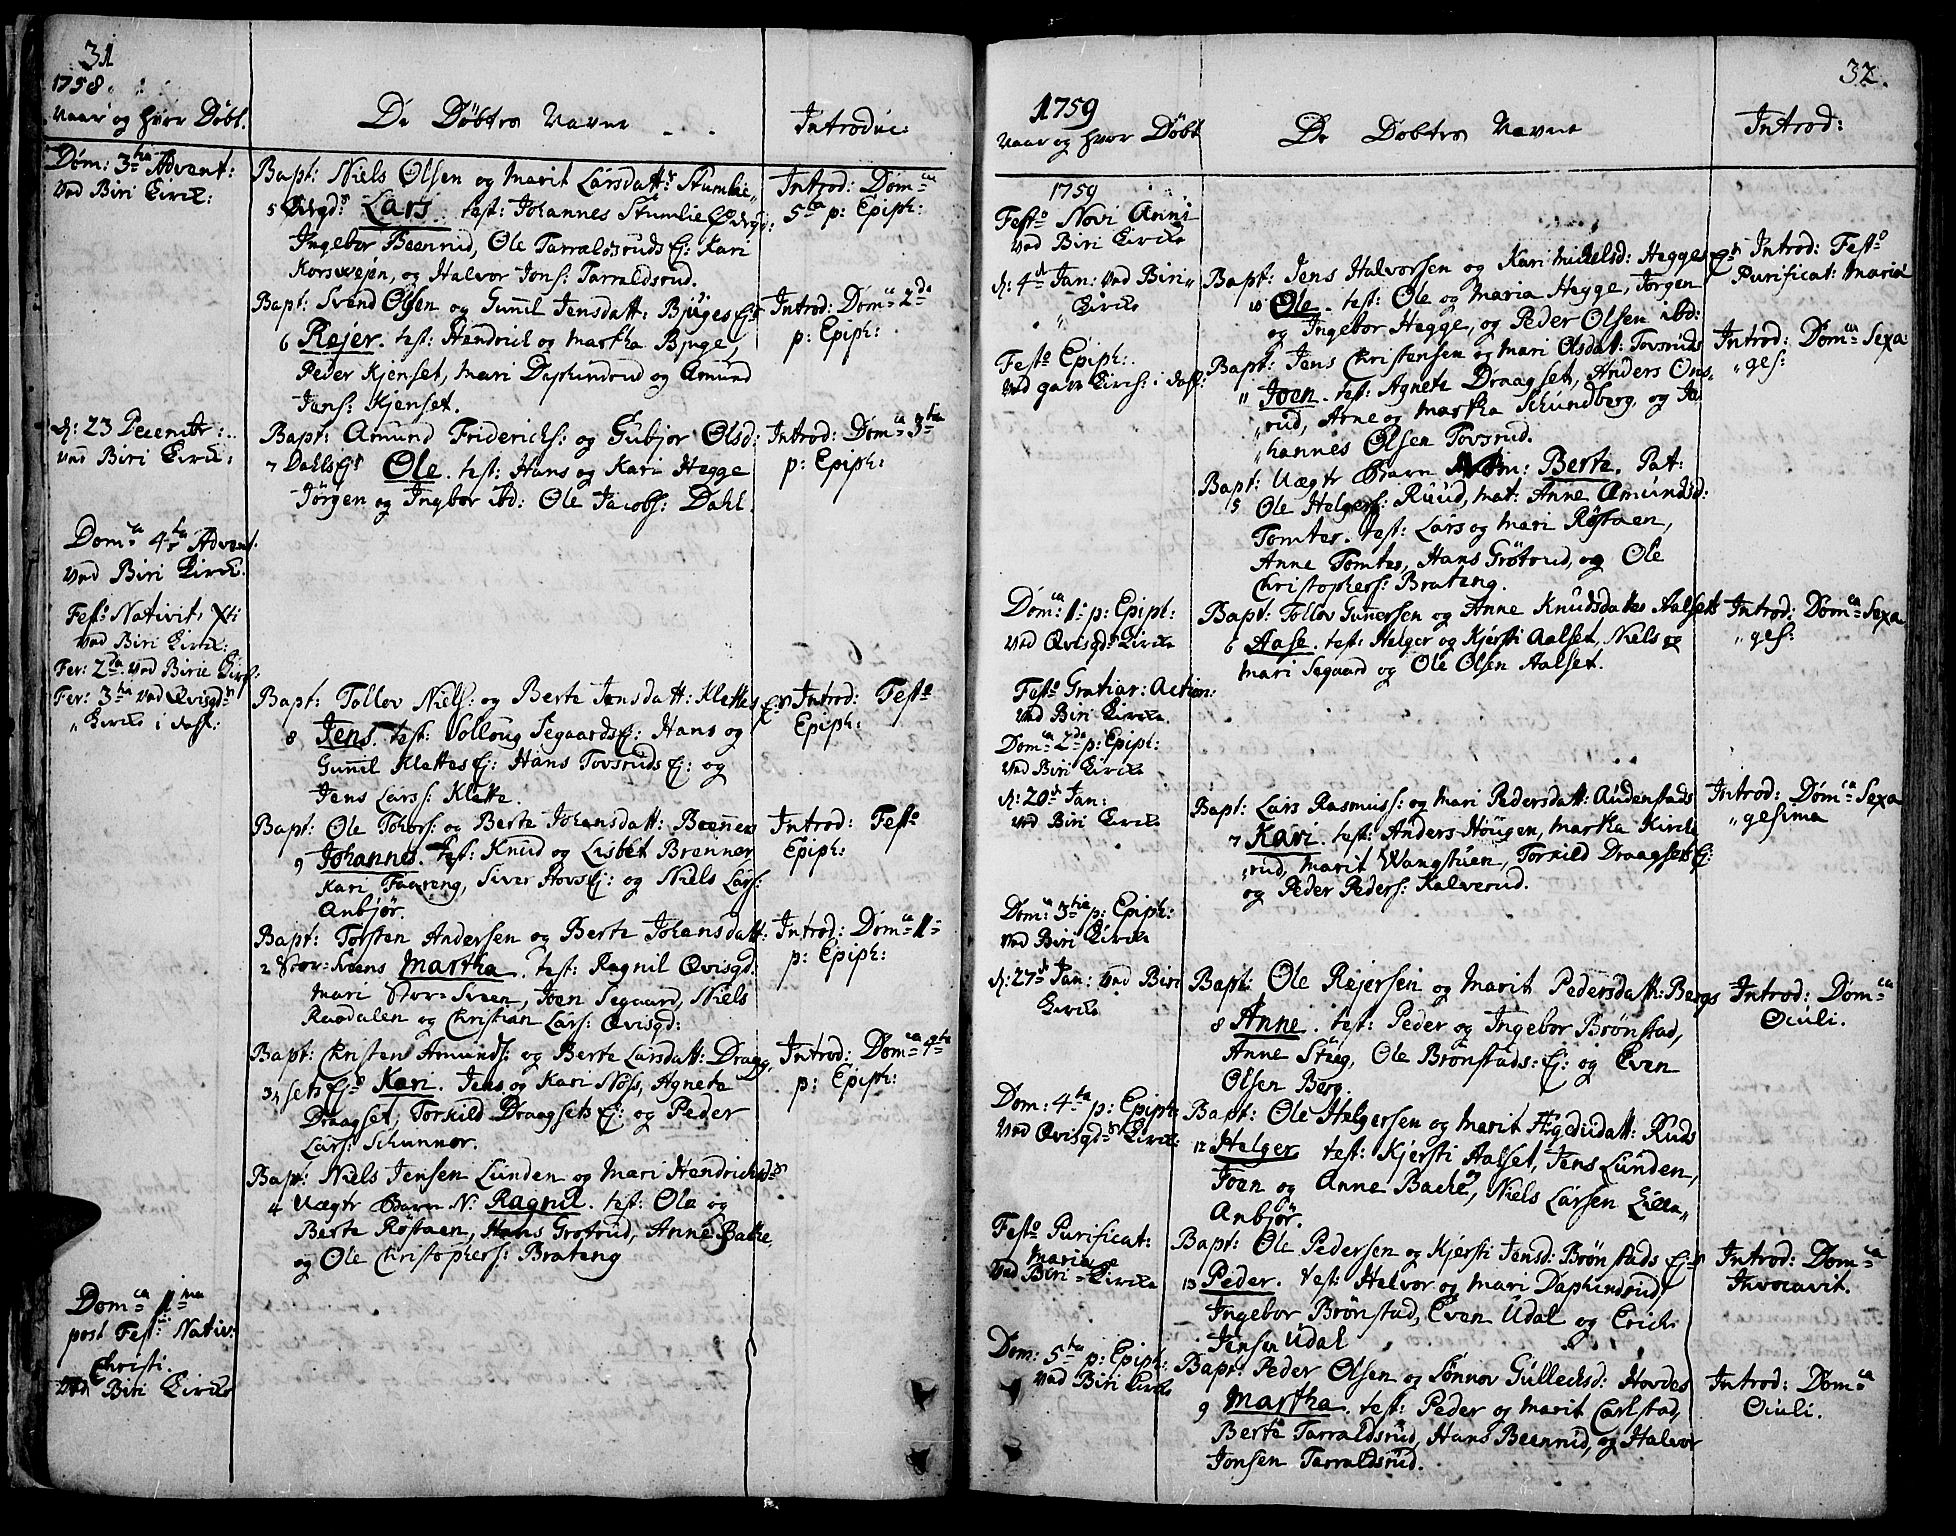 31
1758.
Naar og hvor Døbt.
De Døbtes Navne
Introduc:
Dom: 3tia Advent:
ved Biri Kircke:
Bapt: Niels Olsen og Marit Larsdatt: Stumlie
5 Øvrgd: Lars. test: Johannes Stumlie Øvrgd:
Ingebor Beenrud, Ole Tarraldsruds Ej: Kari
Korsvejen, og Halvor Jons: Tarraldsrud.
Introd: Domca
5ta p: Epiph:
Bapt: Svend Olsen og Gunil Jensdatt: Bjuges Ejr
6 Rejer. test: Hendrick og Martha Bjuge,
Peder Kjenset, Mari Dæhlinrud og Amund
Jens: Kjenset.
Introd: Domca 2da
p: Epiph:
d: 23 Decembr:
ved Biri Kirck:
Bapt: Amund Friderichs: og Gubjør Olsd:
7 Dahls Ejr Ole. test: Hans og Kari Hegge
Jörgen og Ingebor ibd: Ole Jacobs: Dahl.
Introd: Domca 3tia
p: Epiph:
Domca 4ta Advent:
ved Biri Kirck.
Festo Nativit: Xti
ved Biri Kirck:
Fer: 2da ved Birie Kirk:
Fer: 3tia ved Qvisgdr
Kircke i dahl:
Bapt: Tollov Niels: og Berte Jensdatt: Klettes Ejr
8 Jens. test: Solloug Segaards Ej: Hans og
Gunil Klettes Ej: Hans Tovsruds Ej: og
Jens Lars: Klette.
Introd: Festo
Epiph:
Bapt: Ole Thors: og Berte Johansdatt: Beennes
9 Johannes. test: Knud og Lisbet Brenner
Kari Faareng, Siver Hovs Ej: og Niels Lars:
Anbjør.
Introd: Festo
Epiph:
Bapt: Torsten Andersen og Berte Johansdatt:
2 Stor-Sveens Martha. test: Ragnil Qvisgd:
Mari Stor-Sveen, Joen Segaard, Niels
Raadalen og Christian Lars: Qvisgd:
Introd: Domca 1
p: Epiph:
Bapt: Christen Amunds: og Berte Larsdatt: Draag,
3 sets Ejr Kari. Jens og Kari Nöss, Agneta
Draagset, Torkild Draagsets Ej: og Peder
Lars: Schunnor.
Introd: Domca 4ta
p: Epiph:
Bapt: Niels Jensen Lunden og Mari Hendrichsdr
4 Uægte Barn N: Ragnil. test: Ole og
Berte Röstaen, Hans Grotrud, Anne Bakke,
og Ole Christophers: Brateng
Domca 1ma
post Fest: Nativ:
Christi.
ved Biri Kircke
32.
1759
Naar og hvor Döbt
De Döbtes Navne
Introd:
1759
Festo Novi Anni
ved Biri Kircke
d: 4de Jan: ved Biri
Kircke
Bapt: Jens Halvorsen og Kari Mickelsd: Hegges Ejr
10 Ole. test: Ole og Maria Hegge, Jørgen
og Ingebor Hegge, og Peder Olsen ibd:
Introd: Festo
Purificat: Mariæ
Festo Epiph:
ved gavn Kirck: i dahl:
Bapt: Jens Christensen og Mari Olsdatt: Tovsruds
11 Joen. test: Agnete Draagset, Anders Ons,
rud, Arne og Martha Schundberg, og Jo
hannes Olsen Tovsrud.
Introd: Domca Sexa
ges:
Bapt: Uægte Barn Nom: Berte. Pat:
15 Ole Helgers: Ruud, mat: Anne Amundsd:
Tomter. test: Lars og Mari Röstaen,
Anne Tomter, Hans Grötrud, og Ole
Christophers: Brateng.
Domca 1 p: Epiph:
ved Qvisgdr Kircke
Bapt: Tollov Gunersen og Anne Knudsdatter Aalsets
6 Aase. test: Helger og Kjersti Aalset, Niels og
Mari Segaard og Ole Olsen Aalset.
Introd: Domca Sexa
ges:
Festo Gratiar: Action:
ved Biri Kircke.
Domca 2da p: Epiph:
ved Biri Kircke
d: 20de Jan:
ved Biri Kircke
Bapt: Lars Rasmus: og Mari Pedersdatt: Audenstads
7 Kari. test: Anders Hougen, Martha Kirke
rud, Marit Wangstuen, Torkild Draagsets Ej:
og Peder Peders: Kalverud.
Introd: Domca Sexa
gesima
Domca 3tia p: Epiph:
ved Biri Kircke
d: 27de Jan: ved Biri
Kircke
Bapt: Ole Rejersen og Marit Pedersdatt: Bergs
8 Anne. test: Peder og Ingebor Brönstad,
Anne Stueg, Ole Brönstads: Ej: og Even
Olsen Berg.
Introd: Domca
Oculi.
Dom: 4ta p: Epiph:
ved Qvisgdr Kircke
Bapt: Ole Helgersen og Marit Hegedudatt: Ruds
12 Helger. test: Kjersti Aalset, Jens Lunden,
Joen og Anne Backe, Niels Larsen Lille
Anbjør.
Festo Purificat:
Mariæ
ved Biri Kircke
Bapt: Ole Pedersen og Kjersti Jensd: Brönstads Ejr
13 Peder. test: Halvor og Mari Dæhlindrud,
Ingebor Brönstad, Even Udal og Erich
Jensen Udal
Introd: Domca
Invocavit.
Dom: 5ta p: Epiph:
ved Biri Kircke
Bapt: Peder Olsen og Sönnov Gullecksd: Hovdes
9 Martha. test: Peder og Marit Carlstad,
Berte Tarraldsrud, Hans Beenrud, og Halvor
Jonsen Tarraldsrud.
Introd: Domca
Oculi.